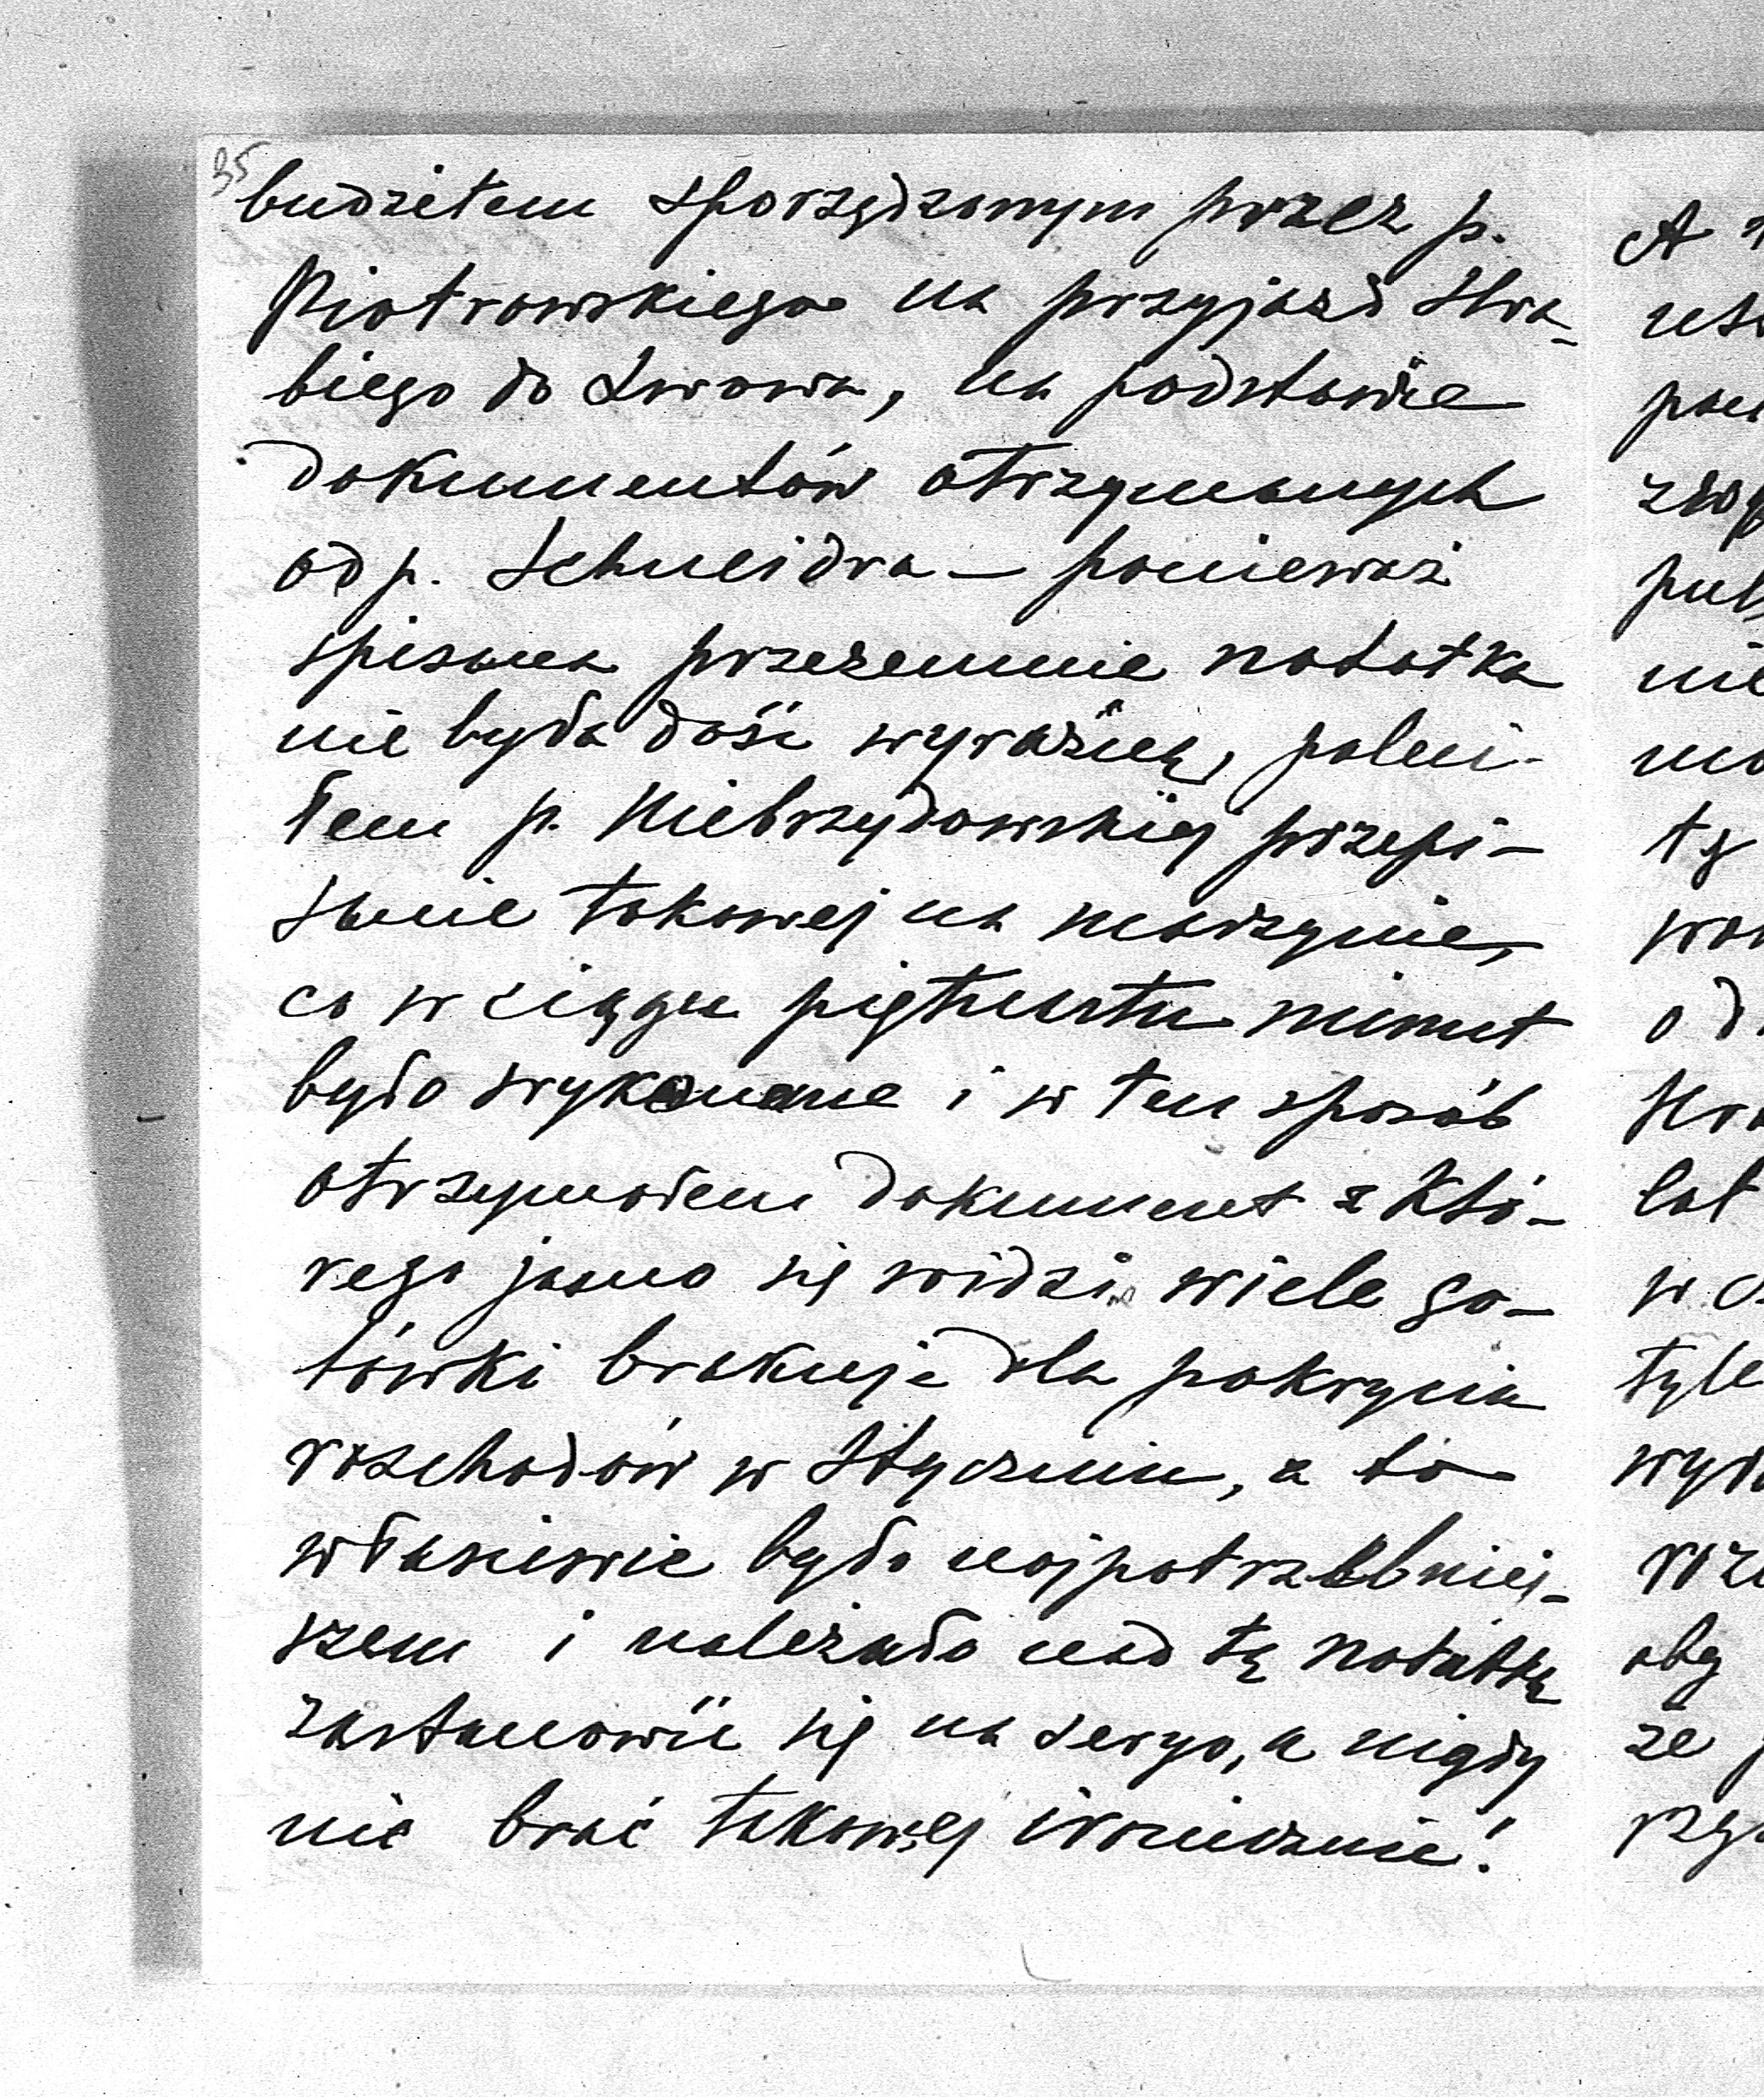 35
budżetem sporządzonym przez p.
Piotrowskiego na przyjazd Hra-
biego do Lwowa, na podstawie
dokumentów otrzymanych
od p. Schneidra — ponieważ
spisana przezemnie notatka
nie była dość wyraźną, poleci-
łem p. Niebrzydowskiej przepi-
sanie takowej na maszynie,
co w ciągu piętnastu minut
było wykonane i w ten sposób
otrzymałem dokument z któ-
rego jasno się widzi wiele go-
tówki brakuje dla pokrycia
rozchodów w Styczniu, a to
właściwie było najpotrzebniej-
szem i należało nad tą notatką
zastanowić się na seryo, a nigdy
nie brać takowej ironicznie!